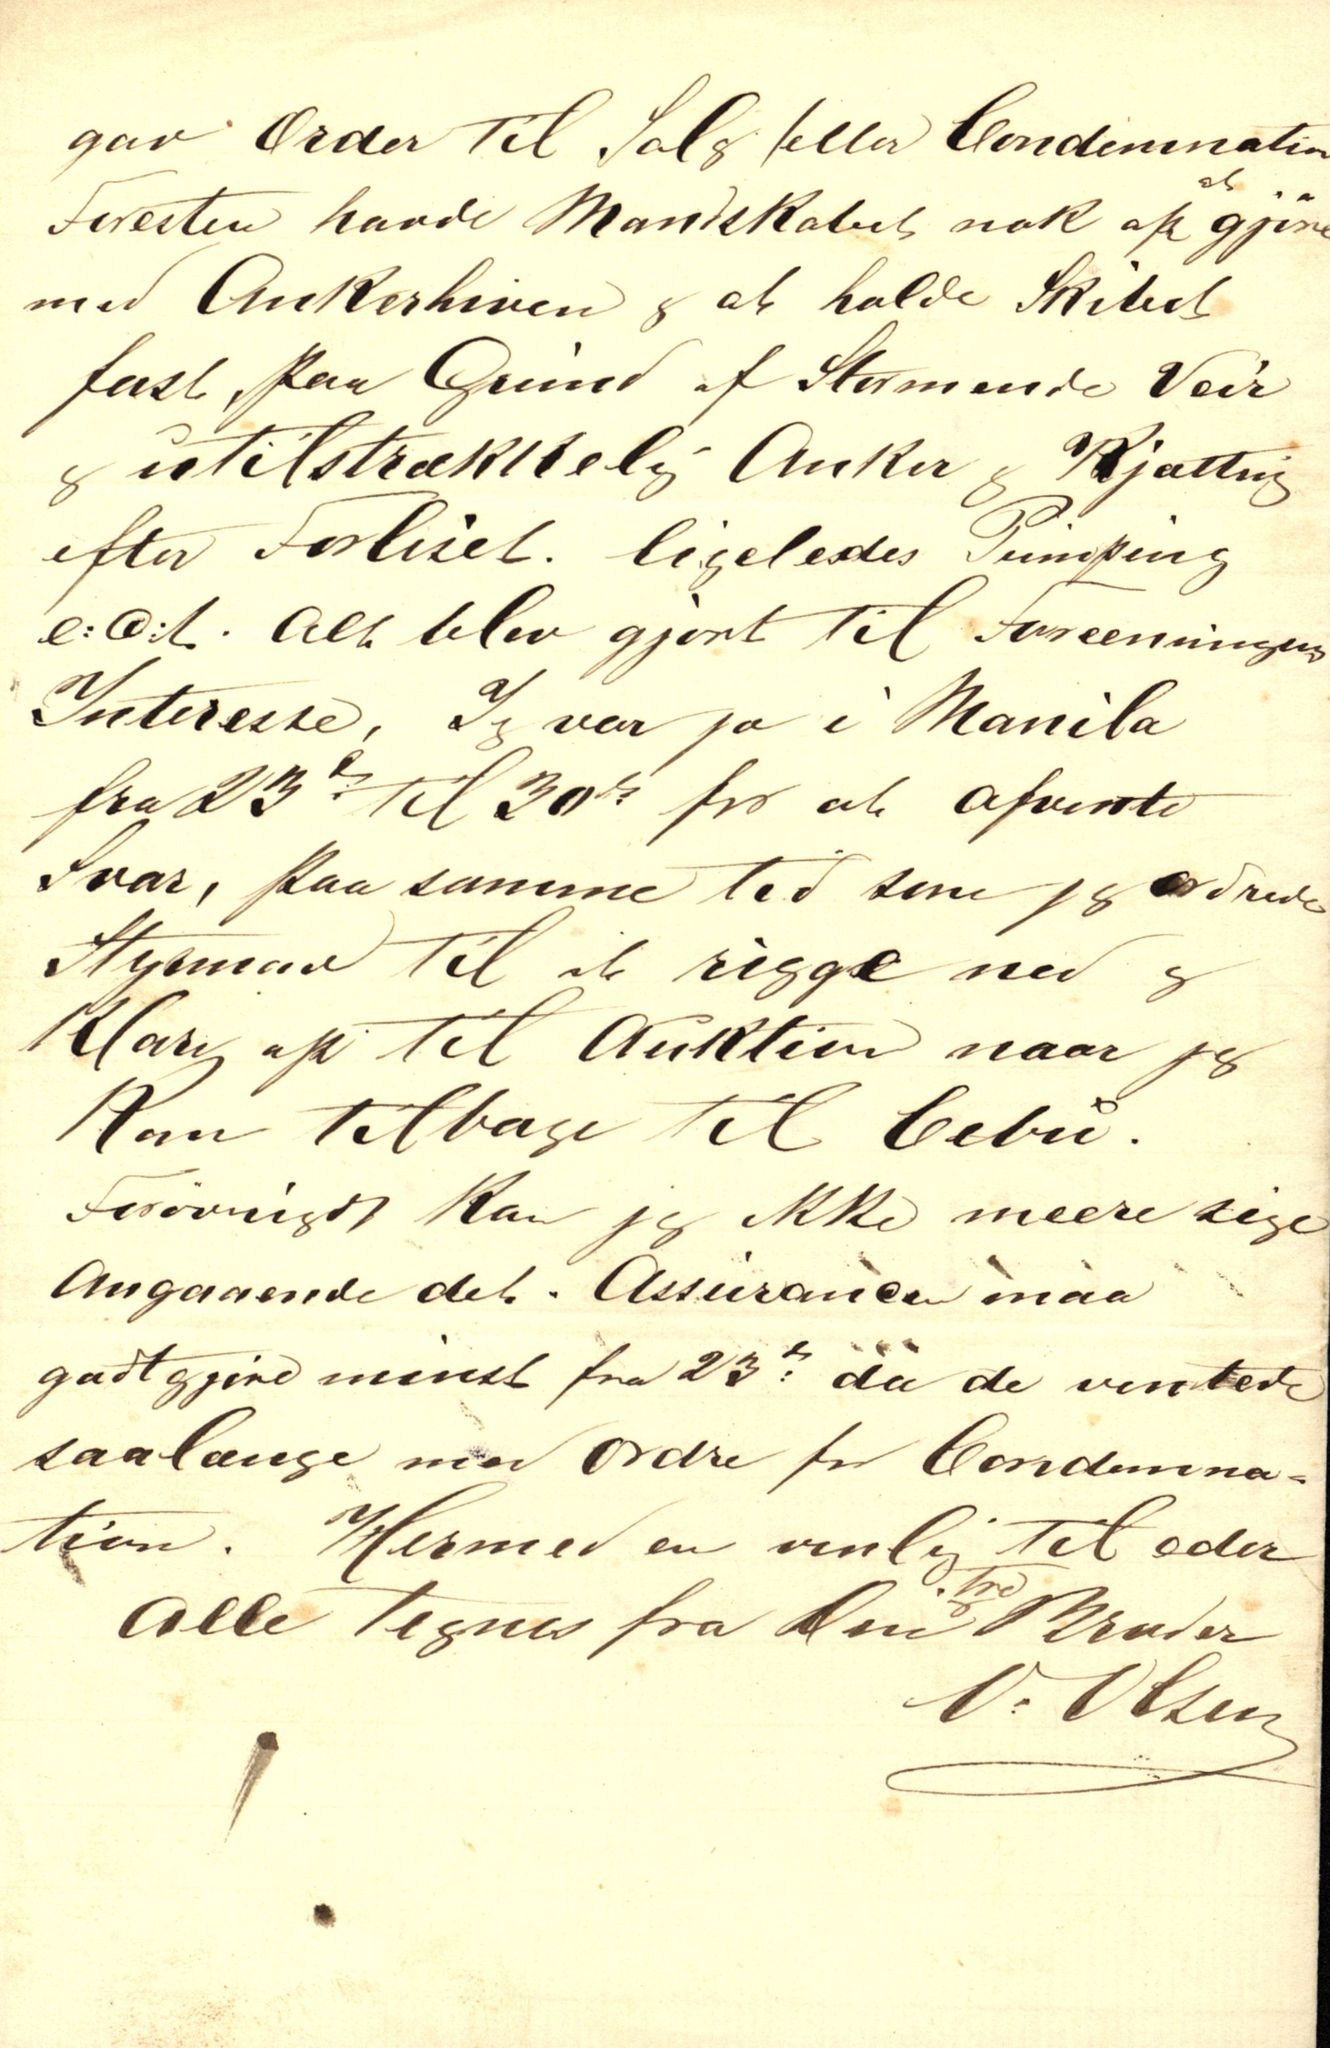 gav Order til Salg eller Condemnation
Foresten havde Mandskabet nok op at gjöre
med Ankerhiven og at holde Skibet
fast, paa Grund af Stormende Veir
og utilstrækkelig Anker og Kjætting
efter Forliset. ligeledes Pumping
e:c:t. Alt blev gjort til Foreeningens
Interesse, Jeg var jo i Manila
fra 23de til 30te for at afvente
Svar, paa samme tid som jeg ordrede
Styrman til at rigge ned og
Klarg op til Auktion naar jeg
Kom tilbage til Cebu.
Forövrigdt Kan jeg ikke meere sige
Angaaende det. Assurancen maa
godtgjöre minst fra 23de da de ventede
saalænge med Ordre for Condemna-
tion. Hermed en venlig til eder
alle tegnes fra Din tro Broder
O. Olsen